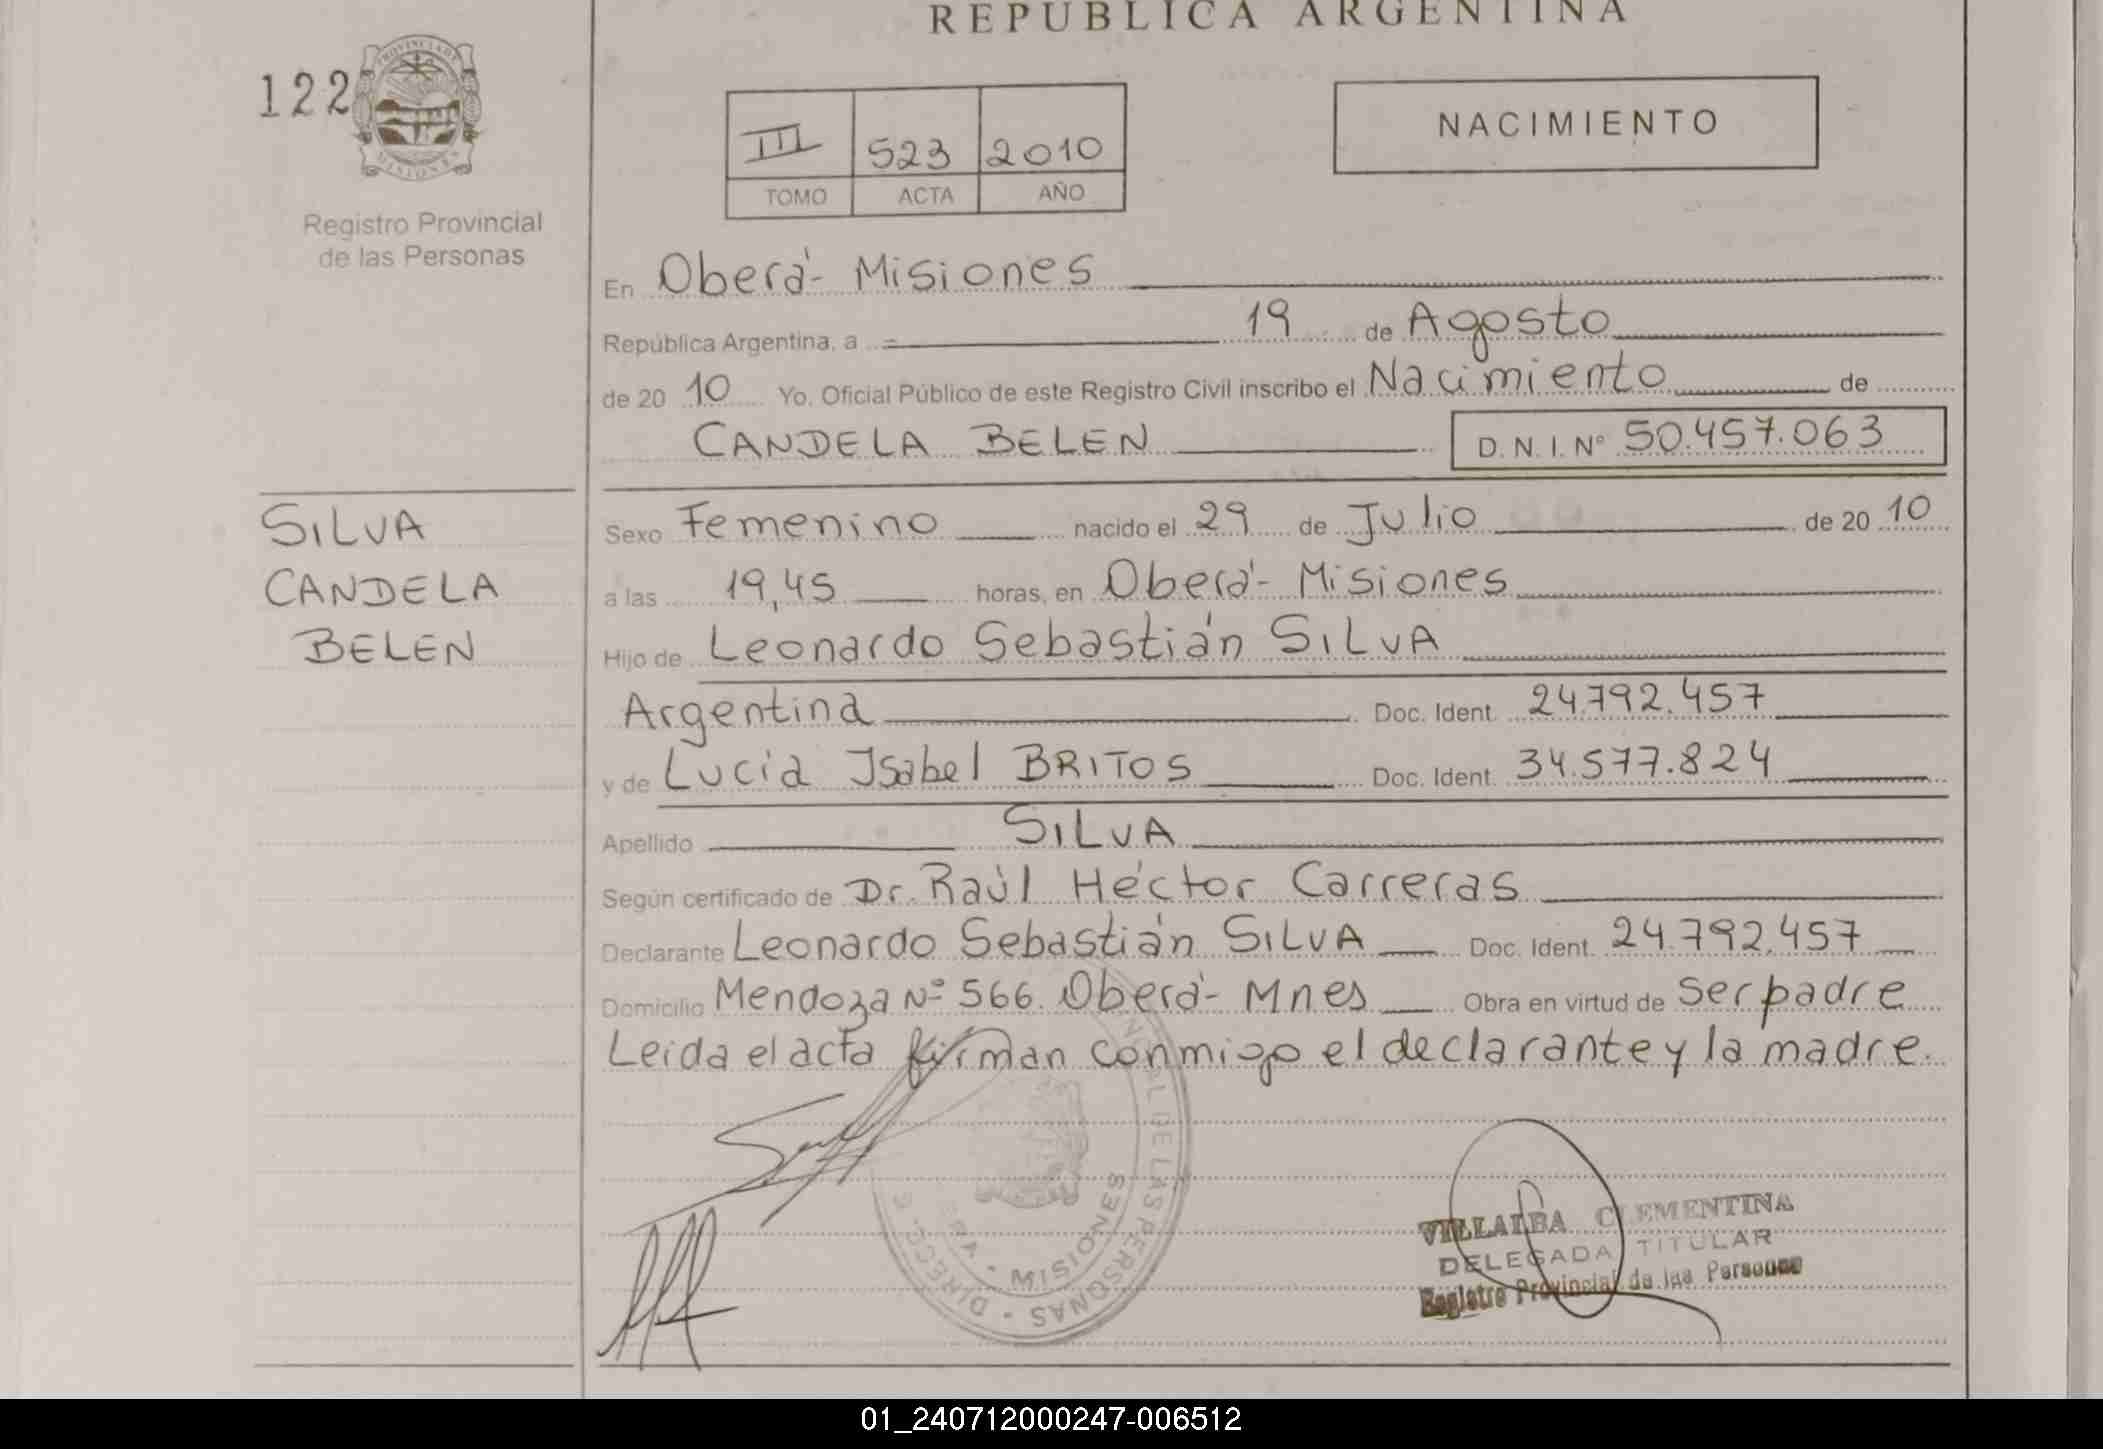 REPUBLICA ARGENTINA
122
PROVINCIA DE MISIONES
Registro Provincial
de las Personas
III 523 2010
TOMO ACTA AÑO
NACIMIENTO
En Oberá - Misiones
República Argentina, a 19 de Agosto
de 20 10 Yo, Oficial Público de este Registro Civil inscribo el Nacimiento de
CANDELA BELEN D.N.I.Nº 50.457.063
SILVA
CANDELA
BELEN
Sexo Femenino nacido el 29 de Julio de 20 10
a las 19,45 horas, en Oberá - Misiones
Hijo de Leonardo Sebastián SILVA
Argentina Doc. Ident. 24.792.457
y de Lucía Isabel BRITOS Doc. Ident. 34.577.824
Apellido SILVA
Según certificado de Dr. Raúl Héctor Carreras
Declarante Leonardo Sebastián SILVA Doc. Ident. 24.792.457
Domicilio Mendoza Nº 566. Oberá - Mnes Obra en virtud de ser padre
Leída el acta firman conmigo el declarante y la madre.
DE LAS PERSONAS
MISIONES
VILLALBA CLEMENTINA
DELEGADA TITULAR
Registro Provincial de las Personas
01_240712000247-006512